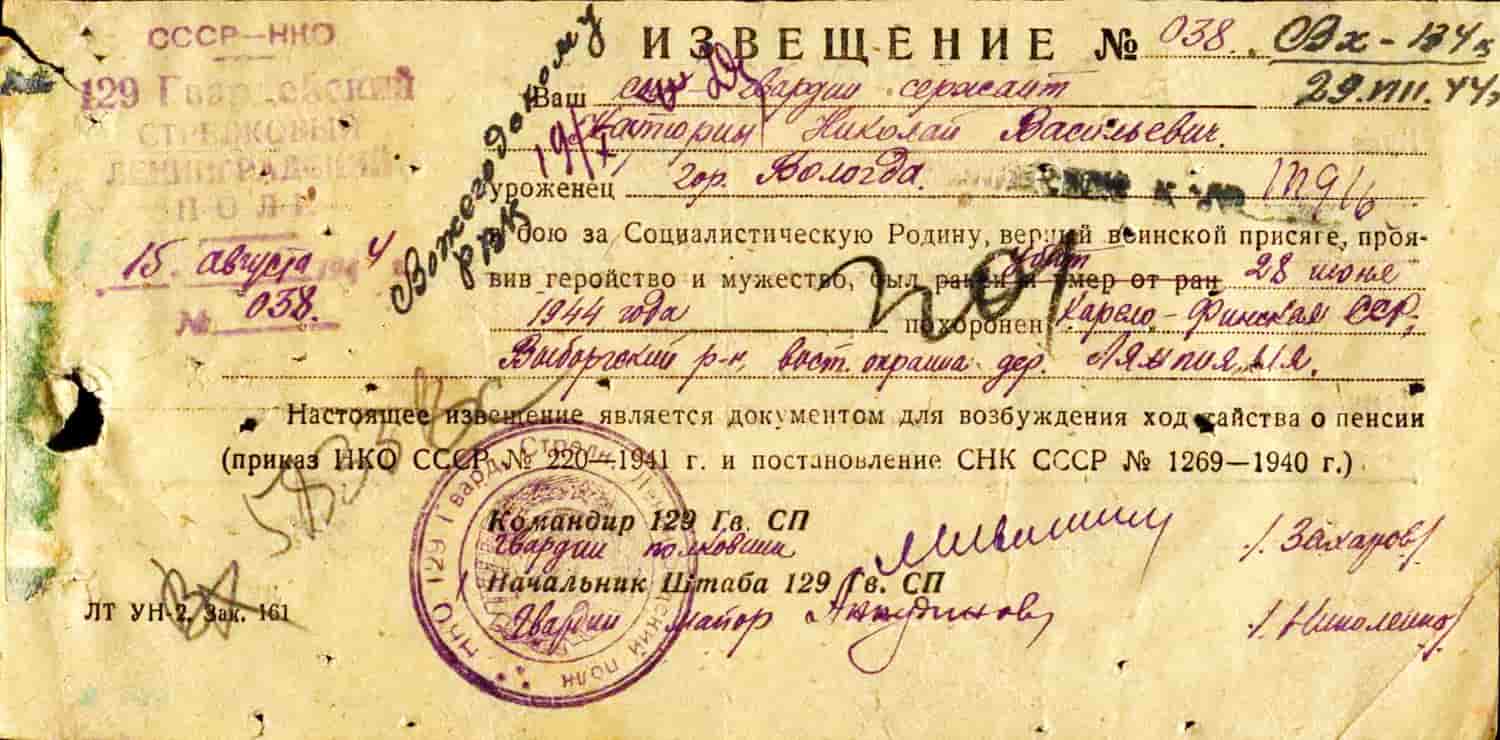 СССР—НКО
129 Гвардейский
СТРЕЛКОВЫЙ
ЛЕНИНГРАДСКИЙ
ПОЛК
15 августа 1944
№ 038.
Вожегодскому
РВК
ИЗВЕЩЕНИЕ № 038. Вх-
29.VIII.44г
Ваш сын гвардии сержант
Николай Васильевич.
уроженец гор. Вологда.
в бою за Социалистическую Родину, верный воинской присяге, проя-
вив геройство и мужество, был ранен и умер от ран убит 28 июня
1944 года похоронен Карело-Финская ССР,
Выборгский р-н, вост. окраина дер.
Настоящее извещение является документом для возбуждения ходатайства о пенсии
(приказ НКО СССР № 220—1941 г. и постановление СНК СССР № 1269—1940 г.)
Командир 129 Гв. СП
Гвардии полковник /Захаров/
Начальник Штаба 129 Гв. СП
Гвардии майор /Николенко/
ЛТ УН-2. Зак. 161
НКО 129 Гвард. Стрелк. Ленинградский полк